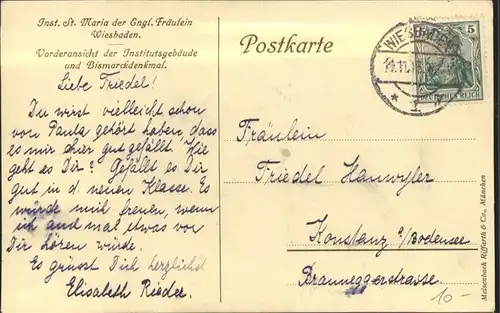 Inst. St. Maria der Engl. Fräulein
Wiesbaden.
Vorderansicht der Institutsgebäude
und Bismarckdenkmal.
Liebe Friedel!
Du wirst vielleicht schon
von Paula gehört haben, dass
es mir hier gut gefällt. Wie
geht es Dir? Gefällt es Dir
gut in d. neuen Klasse. Es
würde mich freuen, wenn
ich auch mal etwas von
Dir hören würde.
Es grüsst Dich herzlichst
Elisabeth Rieder.
Postkarte
WIESBADEN
1
5
DEUTSCHES REICH
Fräulein
Friedel Hanwyler
Konstanz a/Bodensee
Brauneggerstrasse
10-
Meisenbach Riffarth & Co., München